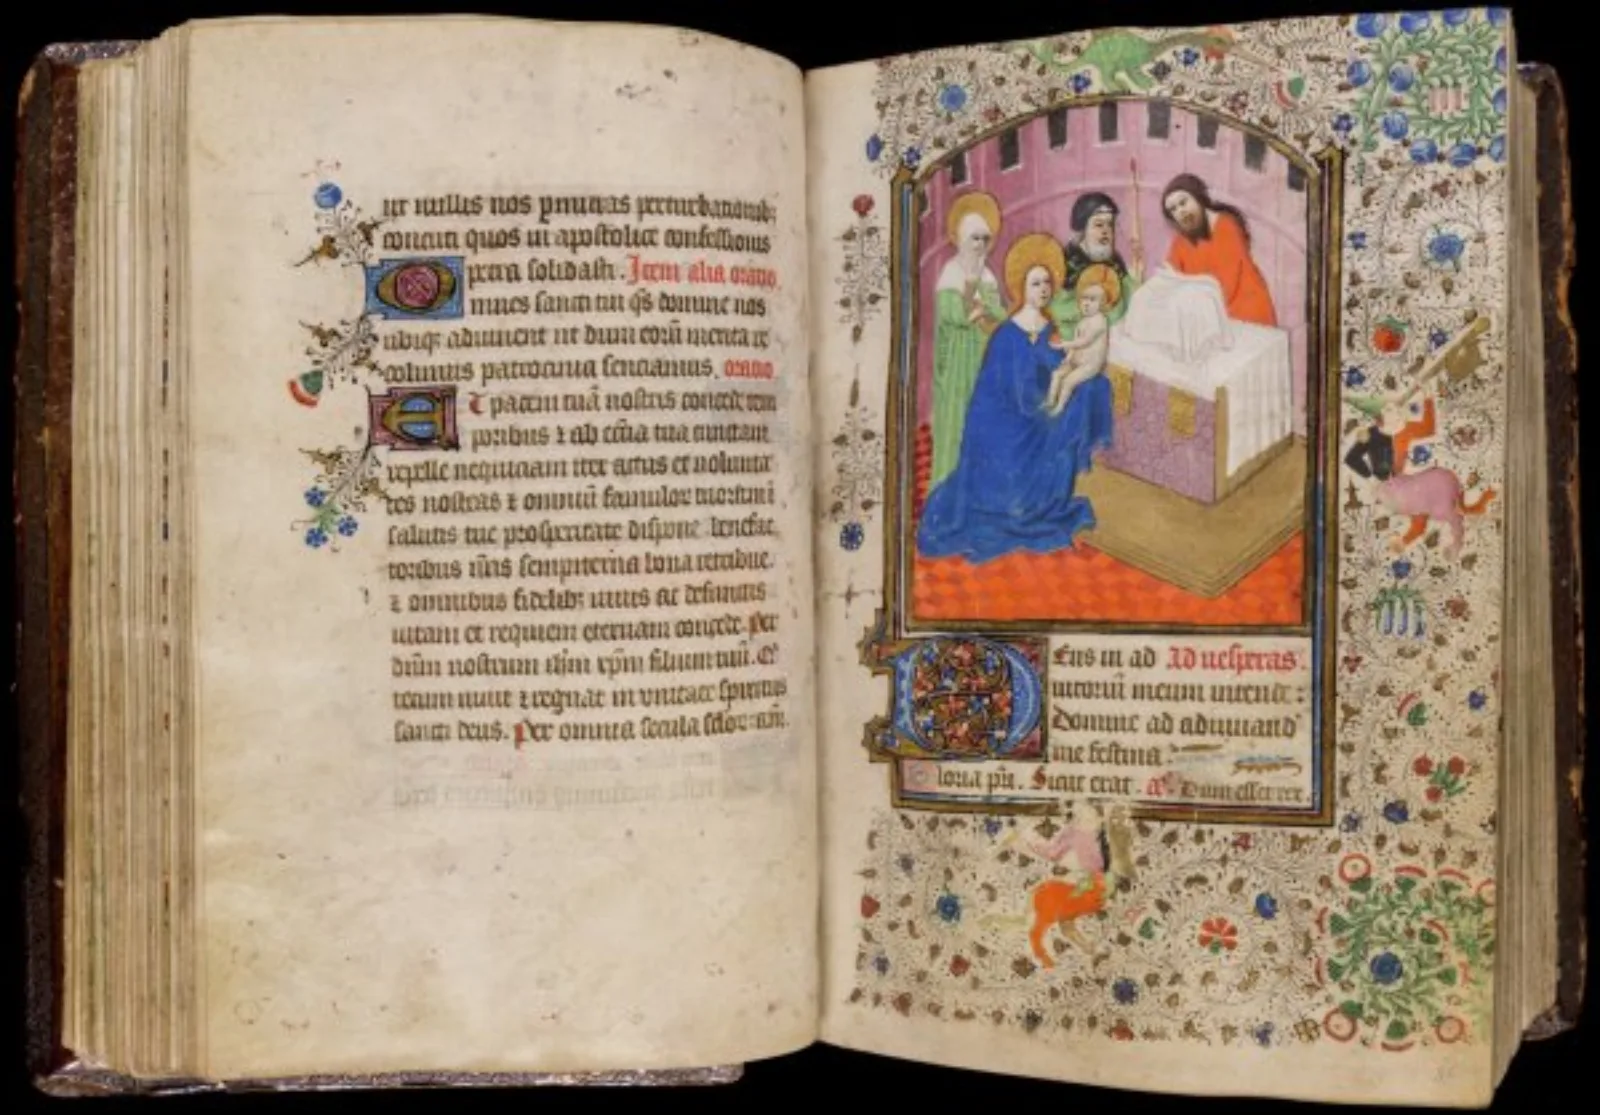 ut nullis nos permittas perturbationib;
concuti quos in apostolice confessionis
petra solidasti. Item alia oratio
Omnes sancti tui qs domine nos
ubiq; adiuvent ut dum eorū merita re
colimus patrocinia sentiamus. oratio
Et pacem tuā nostris concede tem
poribus ⁊ ab ecclia tua cunctam
repelle nequitiam iter actus et volunta
tes nostras ⁊ omniū famulor tuorum ī
salutis tue prosperitate dispone benefac
toribus nris sempiterna bona retribue.
⁊ omnibus fidelib; vivis ac defunctis
vitam et requiem eternam concede. Per
dnm nostrum ihm xpm filium tuū. Qi
tecum vivit ⁊ regnat in unitate spiritus
sancti deus. Per omnia secula sclorum.
Deus in ad Ad vesperas.
iutoriū meum intende:
Domine ad adiuvand
me festina.
Gloria pri. Sicut erat. a. Dum esset rex.